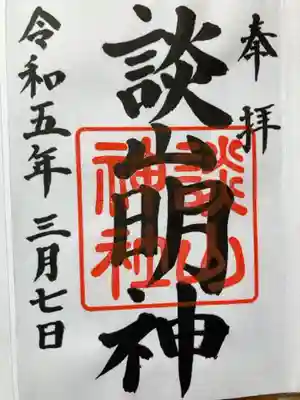 奉拝
談山明神
談山神社
令和五年三月七日